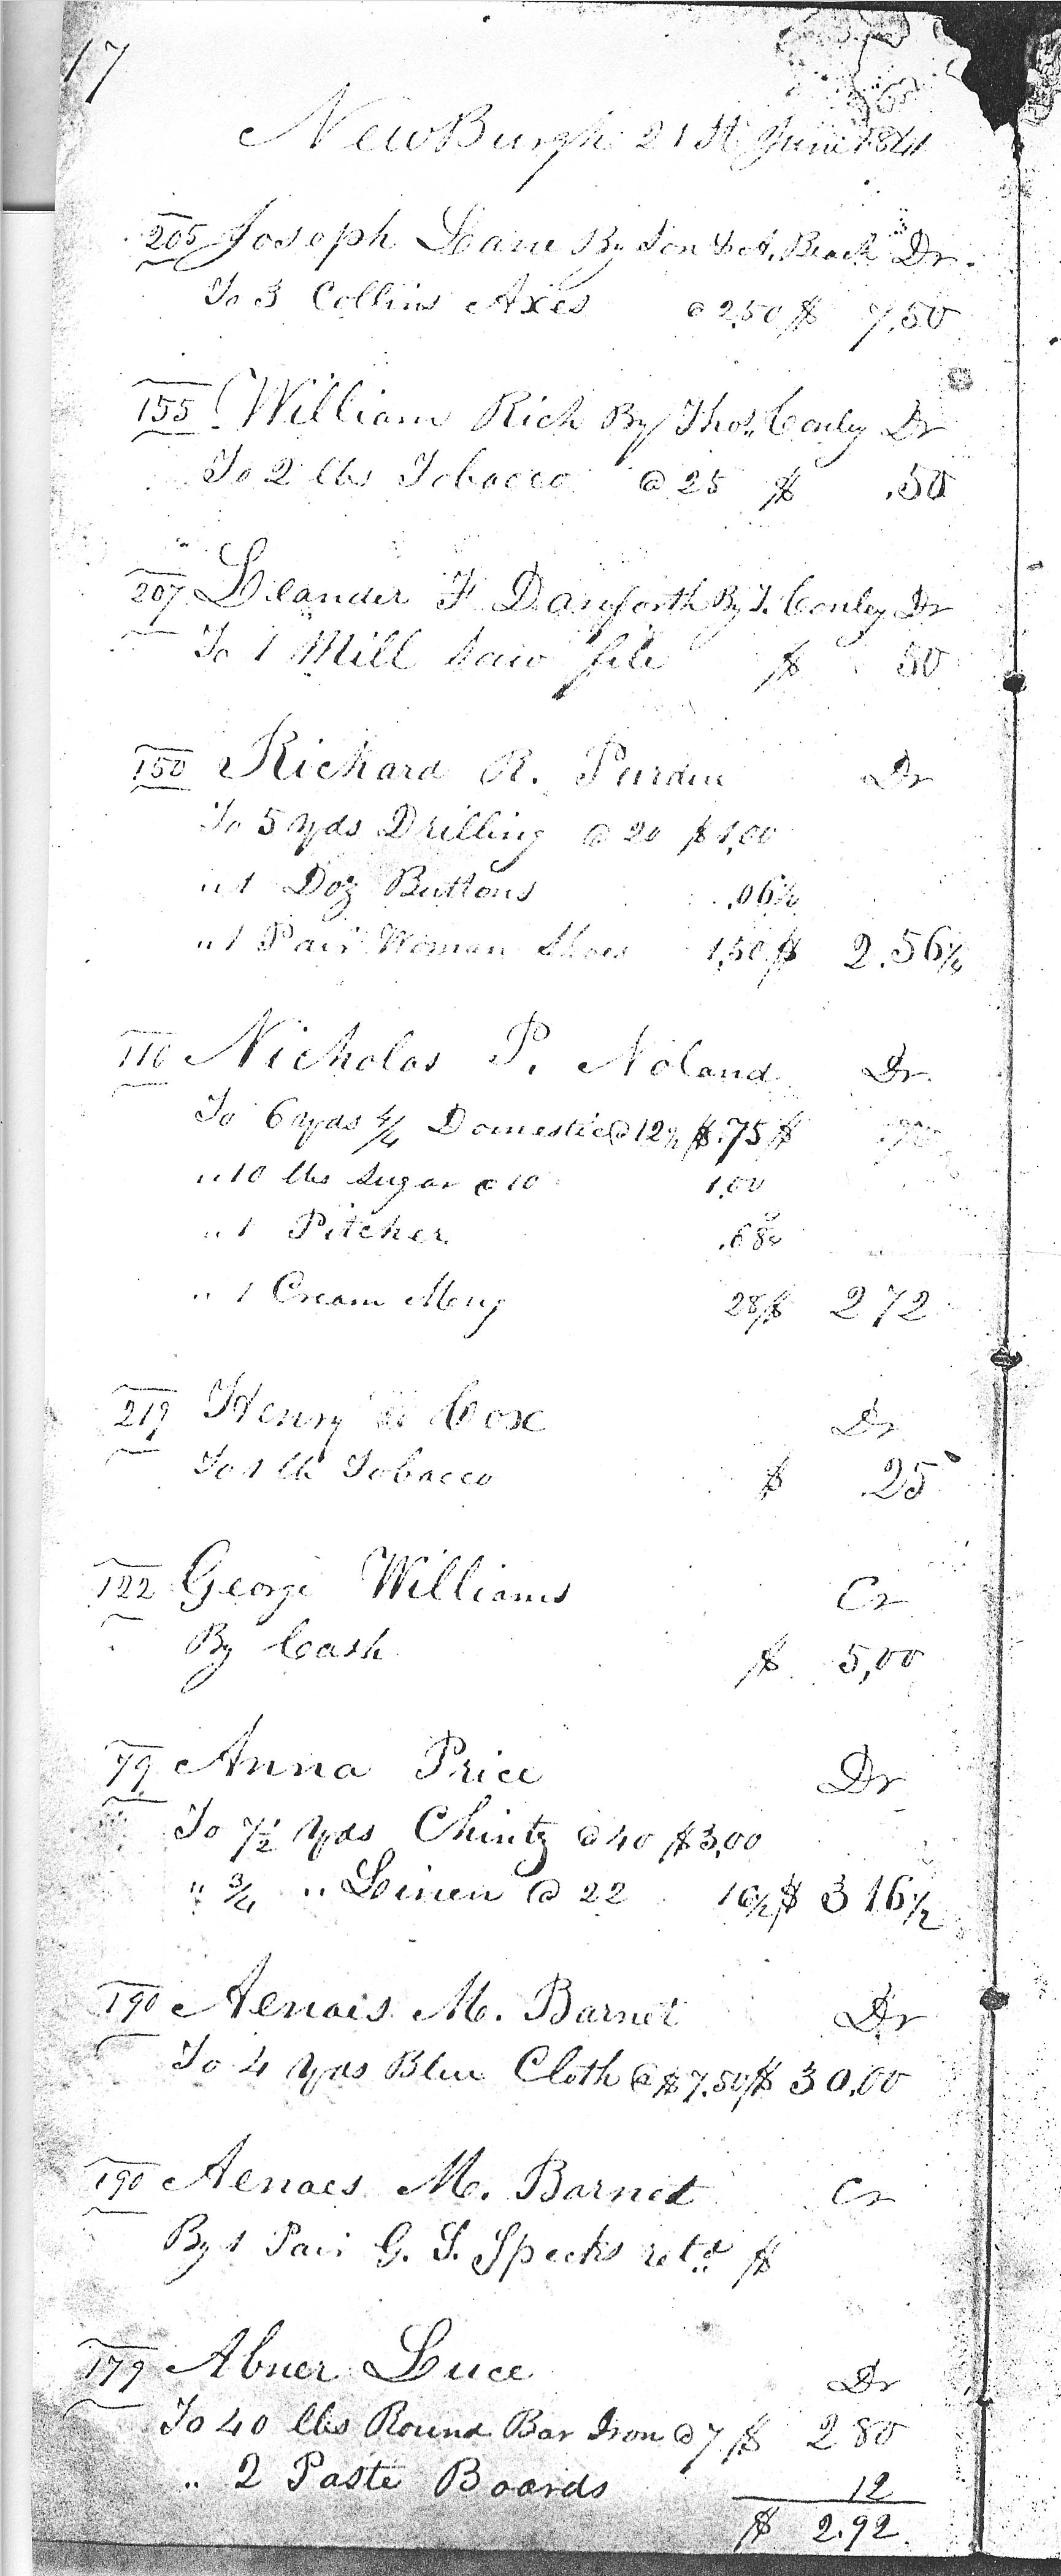 17
NewBurgh 21st June 1841
205 Joseph Lane By Son & A, Beach Dr
To 3 Collins Axes @ 2,50 $ 7,50
155 William Rich By Thos. Conley Dr
To 2 lbs Tobacco @ 25 $ .50
207 Leander F Danforth By T. Conley Dr
To 1 Mill Saw file $ 50
150 Richard R. Purdue Dr
To 5 yds Drilling @ 20 $1,00
" 1 Doz Buttons .06¼
" 1 Pair Woman Shoes 1,50 $ 2.56¼
110 Nicholas P. Noland Dr.
To 6 yds 4/4 Domestic @ 12½ $.75 $
" 10 lbs Sugar @ 10 1,00
" 1 Pitcher .68
" 1 Cream Mug 28 $ 272
219 Henry Cox Dr
To 1 lb Tobacco $ .25
122 George Williams Cr
By Cash $ 5,00
79 Anna Price Dr
To 7½ yds Chintz @ 40 $3,00
" ¾ " Linen @ 22 16½ $ 3 16½
190 Aenaes M. Barnet Dr
To 4 yds Blue Cloth @ $7.50 $ 30,00
190 Aenaes M. Barnet Cr
By 1 Pair G. S. Specks retd $
179 Abner Luce Dr
To 40 lbs Round Bar Iron @ 7 $ 2 80
" 2 Paste Boards 12
$ 2.92.